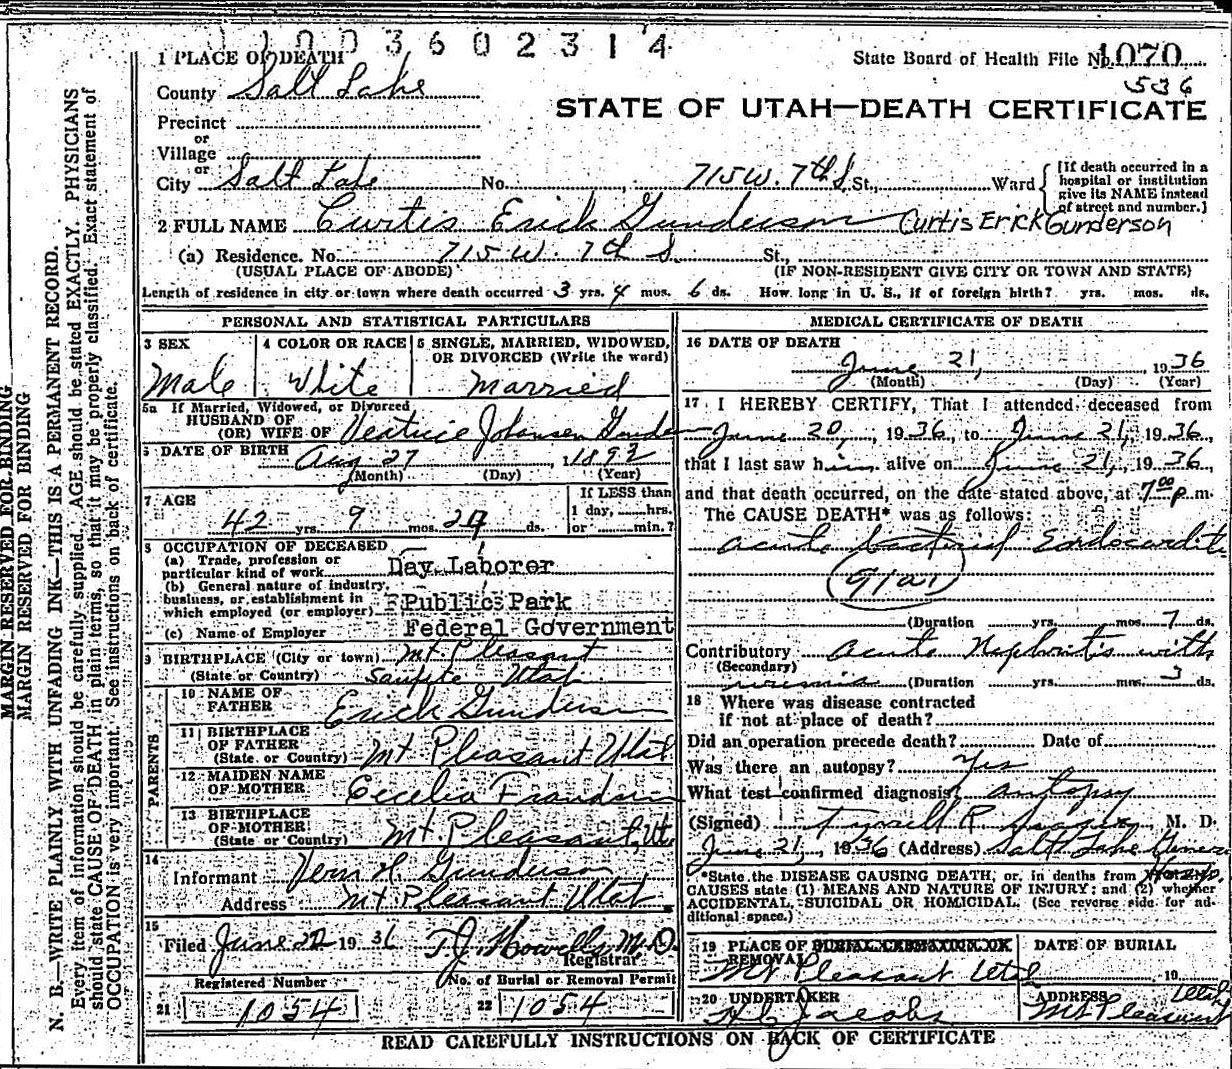 1003602314
1 PLACE OF DEATH
State Board of Health File No. 1070
536
County Salt Lake
STATE OF UTAH—DEATH CERTIFICATE
Precinct
or
Village
or
City Salt Lake No. 715 W. 7th S. St., Ward
[If death occurred in a
hospital or institution
give its NAME instead
of street and number.]
2 FULL NAME Curtis Erick Gunderson Curtis Erick Gunderson
(a) Residence. No. 715 W. 7th S. St.,
(USUAL PLACE OF ABODE) (IF NON-RESIDENT GIVE CITY OR TOWN AND STATE)
Length of residence in city or town where death occurred 3 yrs. 4 mos. 6 ds. How long in U. S., if of foreign birth? yrs. mos. ds.
PERSONAL AND STATISTICAL PARTICULARS
3 SEX
Male
4 COLOR OR RACE
White
5 SINGLE, MARRIED, WIDOWED,
OR DIVORCED (Write the word)
Married
5a If Married, Widowed, or Divorced
HUSBAND OF
(OR) WIFE OF Veatrice Johansen
6 DATE OF BIRTH Aug 27, 1893
(Month) (Day) (Year)
7 AGE
42 yrs. 9 mos. ds.
If LESS than
1 day, hrs.
or min.?
8 OCCUPATION OF DECEASED
(a) Trade, profession or
particular kind of work Day Laborer
(b) General nature of industry,
business, or establishment in
which employed (or employer) Public Park
(c) Name of Employer Federal Government
9 BIRTHPLACE (City or town) Mt. Pleasant
(State or Country) Sanpete Utah
PARENTS
10 NAME OF
FATHER Erick Gunderson
11 BIRTHPLACE
OF FATHER
(State or Country) Mt Pleasant Utah
12 MAIDEN NAME
OF MOTHER Cecelia Frandsen
13 BIRTHPLACE
OF MOTHER
(State or Country) Mt. Pleasant, Ut.
14
Informant Vern H. Gunderson
Address Mt Pleasant Utah
15
Filed June 22 1936 T.J. Howells M.D.
Registrar
Registered Number
21 1054
No. of Burial or Removal Permit
22 1054
MEDICAL CERTIFICATE OF DEATH
16 DATE OF DEATH
June 21, 1936
(Month) (Day) (Year)
17 I HEREBY CERTIFY, That I attended deceased from
June 20, 1936, to June 21, 1936,
that I last saw him alive on June 21, 1936
and that death occurred, on the date stated above, at 7:00 p.m.
The CAUSE DEATH* was as follows:
Acute bacterial Endocarditis
(Duration yrs. mos. 7 ds.
Contributory Acute Nephritis with
(Secondary)
uremia (Duration yrs. mos. 3 ds.
18 Where was disease contracted
if not at place of death?
Did an operation precede death? Date of
Was there an autopsy? Yes
What test confirmed diagnosis? Autopsy
(Signed) M. D.
June 21, 1936 (Address) Salt Lake General
Hosp.
*State the DISEASE CAUSING DEATH, or, in deaths from
CAUSES state (1) MEANS AND NATURE OF INJURY; and (2) whether
ACCIDENTAL, SUICIDAL OR HOMICIDAL. (See reverse side for ad-
ditional space.)
19 PLACE OF BURIAL CREMATION OR
REMOVAL
Mt Pleasant Utah
DATE OF BURIAL
19
20 UNDERTAKER
H C Jacobs
ADDRESS Utah
Mt Pleasant
READ CAREFULLY INSTRUCTIONS ON BACK OF CERTIFICATE
MARGIN RESERVED FOR BINDING
MARGIN RESERVED FOR BINDING
N. B.—WRITE PLAINLY WITH UNFADING INK—THIS IS A PERMANENT RECORD.
Every item of information should be carefully supplied. AGE should be stated EXACTLY. PHYSICIANS
should state CAUSE OF DEATH in plain terms, so that it may be properly classified. Exact statement of
OCCUPATION is very important. See instructions on back of certificate.